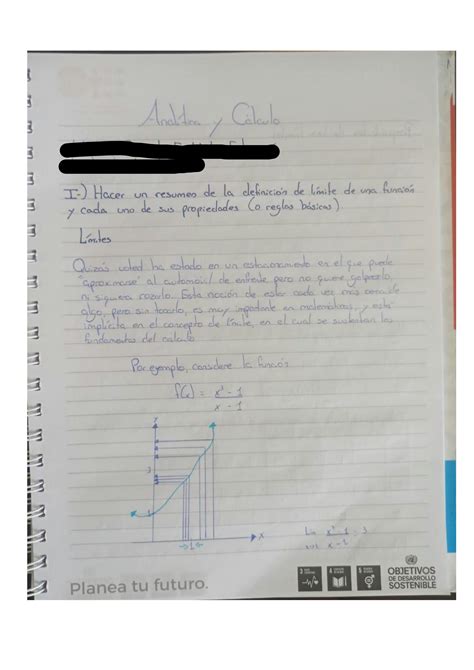 Analitica y Cálculo
I-) Hacer un resumen de la definición de límite de una función
y cada uno de sus propiedades (o reglas básicas)
Límites
Quizás usted ha estado en un estacionamiento en el que puede
"aproximarse" al automóvil de enfrente pero no quiere golpearlo,
ni siquiera rozarlo. Esta noción de estar cada vez más cerca de
algo, pero sin tocarlo, es muy importante en matemáticas, y está
implícita en el concepto de límite, en el cual se sustentan los
fundamentos del cálculo
Por ejemplo, considere la función
f(x) = x³ - 1
x - 1
y
3
1
x
→1←
Lim x³-1 = 3
x→1 x-1
Planea tu futuro.
3
4
5
OBJETIVOS
DE DESARROLLO
SOSTENIBLE